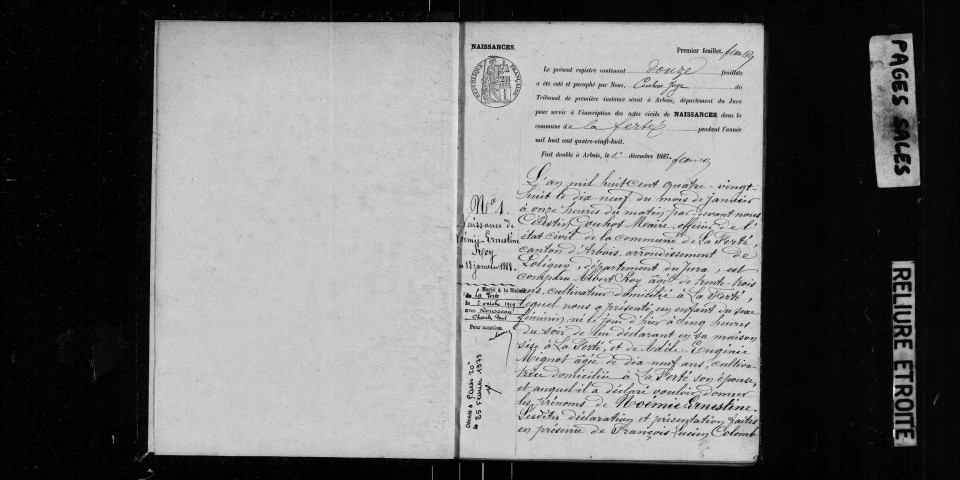 NAISSANCES.
Premier feuillet.
RÉPUBLIQUE FRANÇAISE
Le présent registre contenant douze feuillets
a été coté et paraphé par Nous, Juge du
Tribunal de première instance séant à Arbois, département du Jura
pour servir à l'inscription des actes civils de NAISSANCES dans la
commune de la ferté pendant l'année
mil huit cent quatre-vingt-huit.
Fait double à Arbois, le décembre 1887.
N° 1.
Naissance de
Noémie-Ernestine
Roy
du 18 janvier 1888.
Marié à la Mairie
de La Ferté
le 2 octobre 1909
avec Rousseau
Charles
Pour mention.
Décédée à Paris 20e
le 25 Février 1973
L'an mil huit cent quatre-vingt-
huit le dix neuf du mois de janvier
à onze heures du matin, par devant nous
Célestin Gouhot Maire, officier de l'
état civil de la commune de La Ferté,
canton d'Arbois, arrondissement de
Poligny, département du Jura, est
comparu Albert Roy âgé de trente-trois
ans, cultivateur domicilié à La Ferté,
lequel nous a présenté un enfant du sexe
féminin, né le jour d'hier à cinq heures
du soir de lui déclarant en sa maison
sise à La Ferté, et de Adèle Eugénie
Mignot âgée de dix neuf ans, cultiva-
trice domiciliée à La Ferté son épouse,
et auquel il a déclaré vouloir donner
les prénoms de Noémie Ernestine.
Lesdites déclaration et présentation faites
en présence de François Lucien Colomb
PAGES SALES
RELIURE ETROITE